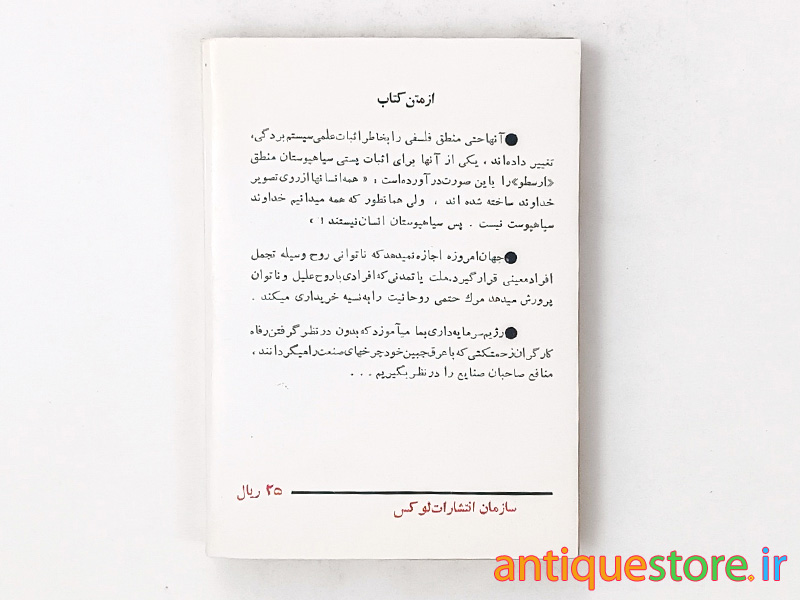 از متن کتاب
● آنها حتی منطق فلسفی را بخاطر اثبات علمی سیستم بردگی،
تغییر داده‌اند، یکی از آنها برای اثبات پستی سیاهپوستان منطق
«ارسطو» را باین صورت در آورده است: «همه انسانها از روی تصویر
خداوند ساخته شده اند، ولی همانطور که همه میدانیم خداوند
سیاهپوست نیست. پس سیاهپوستان انسان نیستند!»
● جهان امروزه اجازه نمیدهد که ناتوانی روح وسیله تجمل
افراد معینی قرار گیرد. ملت یا تمدنی که افرادی با روح علیل و ناتوان
پرورش میدهد مرك حتمی روحانیت را به نسیه خریداری میکند.
● رژیم سرمایه‌داری بما میآموزد که بدون در نظر گرفتن رفاه
کارگران زحمتکشی که با عرق جبین خود چرخهای صنعت را میگردانند،
منافع صاحبان صنایع را در نظر بگیریم...
۲۵ ریال
سازمان انتشارات لوکس
antiquestore.ir